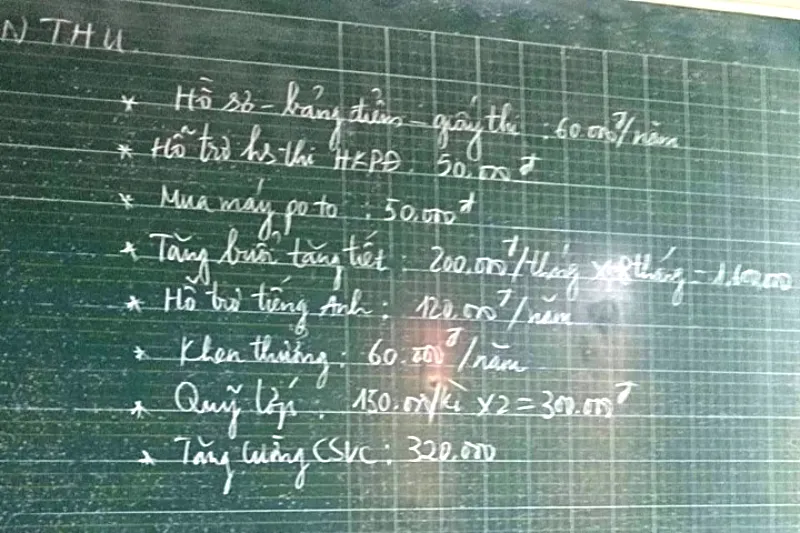 N THU
* Hồ sơ - bảng điểm - giấy thi : 60.000đ/năm
* Hỗ trợ hs thi HKPĐ: 50.000đ
* Mua máy poto : 50.000đ
* Tăng buổi tăng tiết : 200.000đ/tháng tháng =
* Hỗ trợ tiếng Anh : 120.000đ/năm
* Khen thưởng : 60.000đ/năm
* Quỹ lớp : 150.000/kì x2 = 300.000đ
* Tăng cường CSVC : 320.000